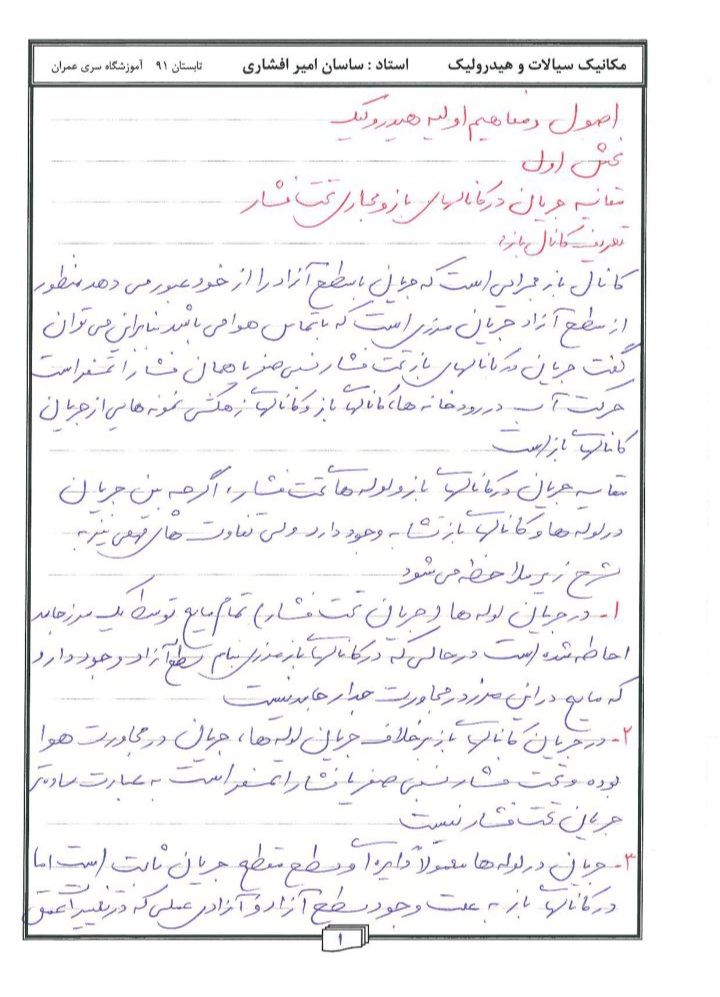 مکانیک سیالات و هیدرولیک استاد : ساسان امیر افشاری تابستان ۹۱ آموزشگاه سری عمران
اصول و مفاهیم اولیه هیدرولیک
بخش اول
مقایسه جریان در کانالهای باز و مجاری تحت فشار
تعریف کانال باز:
کانال باز مجرایی است که جریان با سطح آزاد را از خود عبور می دهد منظور
از سطح آزاد جریان مرزی است که با تماس هوا می باشد بنابراین می توان
گفت جریان در کانالهای باز تحت فشار نسبی صفر یا همان فشار اتمسفر است
حرکت آب در رودخانه ها، کانالهای باز و کانالهای زهکشی نمونه هایی از جریان
کانالهای باز است
مقایسه جریان در کانالهای باز و لوله های تحت فشار، اگرچه بین جریان
در لوله ها و کانالهای باز تشابه وجود دارد ولی تفاوت های مهمی نیز به
شرح زیر ملاحظه می شود
۱- در جریان لوله ها (جریان تحت فشار) تمام مایع توسط یک مرز جامد
احاطه شده است در حالی که در کانالهای باز مرزی بنام سطح آزاد وجود دارد
که مایع در این مرز در مجاورت جدار جامد نیست
۲- در جریان کانالهای باز برخلاف جریان لوله ها، جریان در مجاورت هوا
بوده و تحت فشار نسبی صفر یا فشار اتمسفر است به عبارت ساده تر
جریان تحت فشار نیست
۳- جریان در لوله ها معمولاً دایره ای و سطح مقطع جریان ثابت است اما
در کانالهای باز به علت وجود سطح آزاد و آزادی عملی که در تغییرات عمق
۱